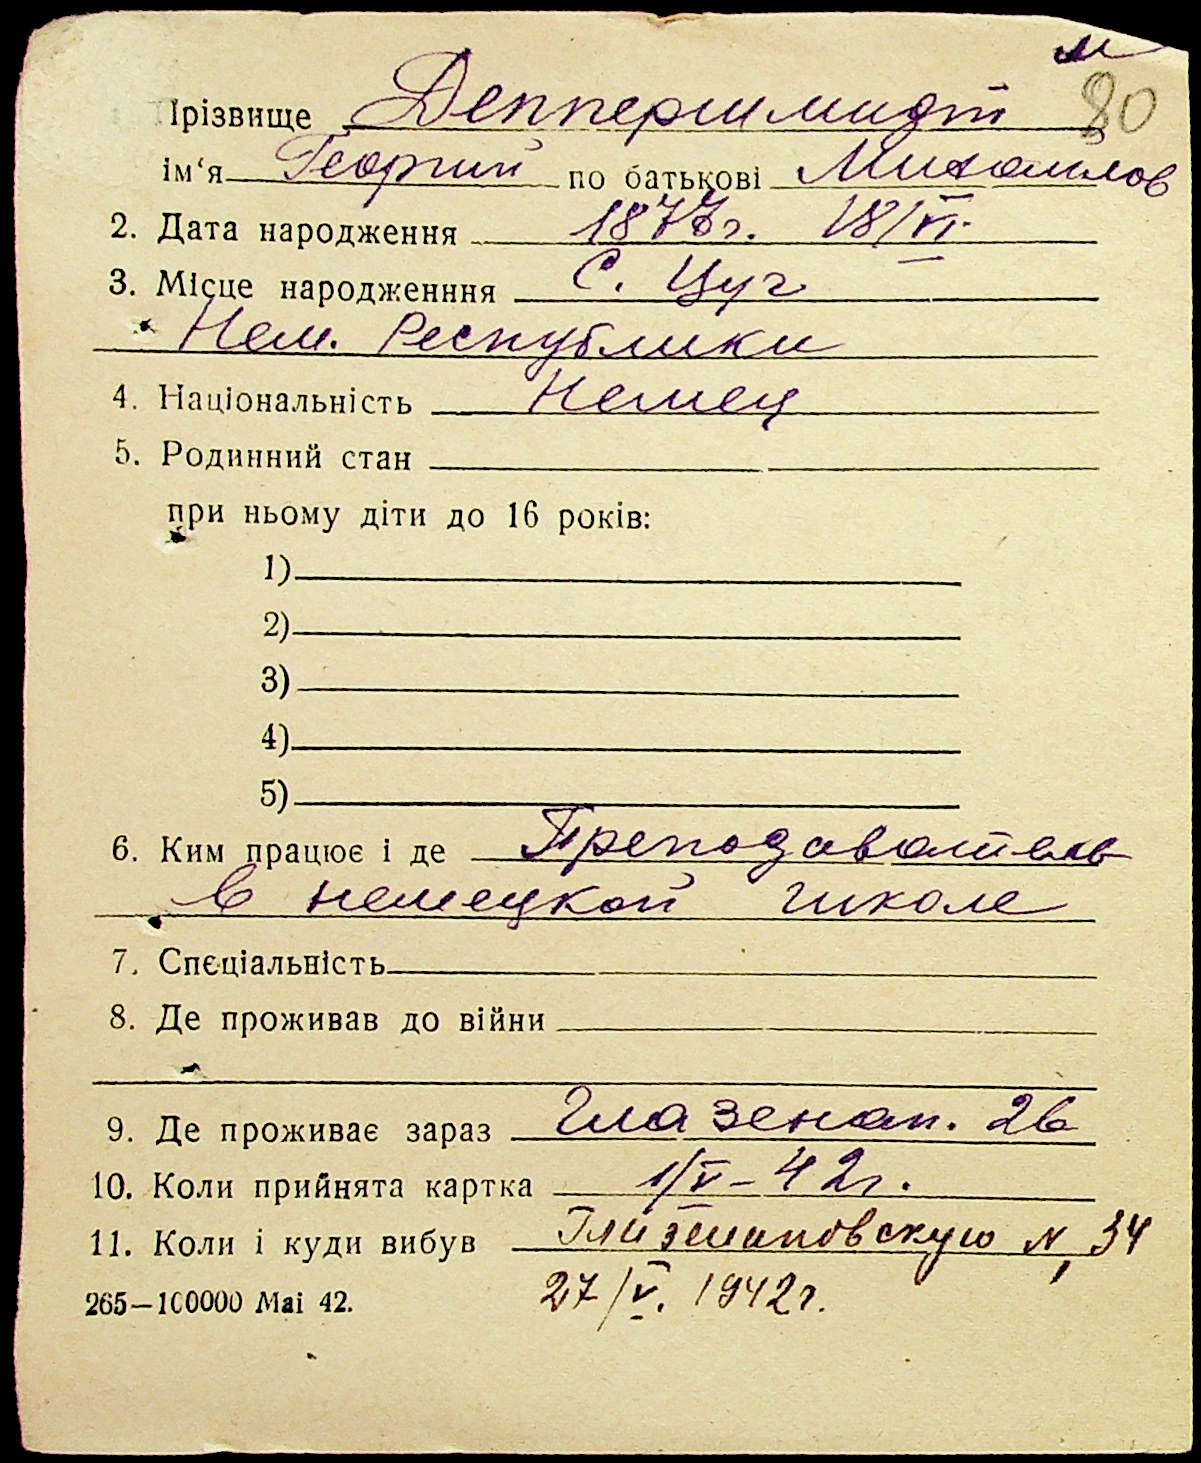 м
80
Прізвище Деппершмидт
ім‘я Георгий по батькові Михайлов
2. Дата народження 1877г. 18/VI.
3. Місце народженння С. Цуг
Нем. Республики
4. Національність Немец
5. Родинний стан
при ньому діти до 16 років:
1)
2)
3)
4)
5)
6. Ким працює і де Преподаватель
в немецкой школе
7. Спєціальність
8. Де проживав до війни
9. Де проживає зараз Глазенап. 26
10. Коли прийнята картка 1/V – 42г.
11. Коли і куди вибув N 34
265—100000 Маі 42. 27/V. 1942г.